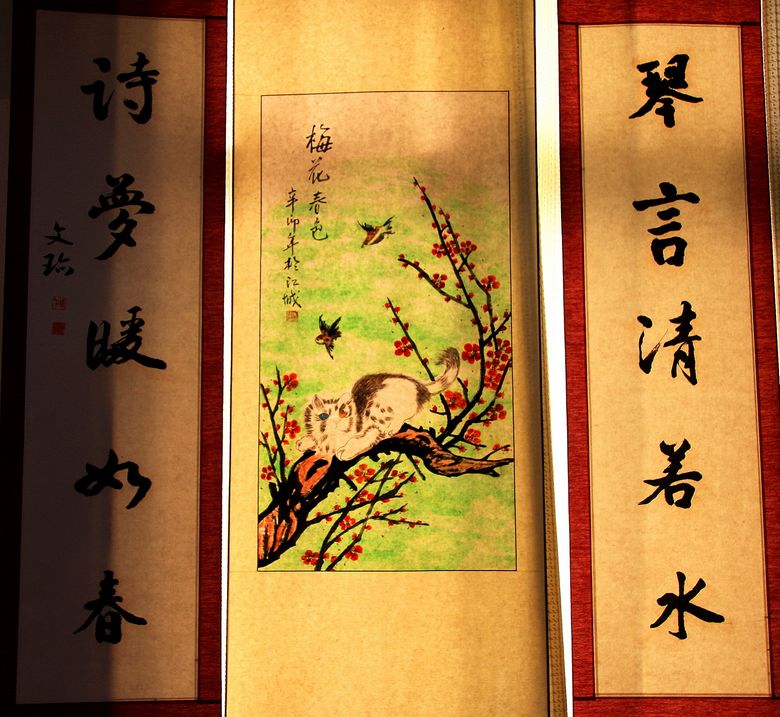 琴言清若水
梅花春色
辛卯年於江城
詩夢暖如春
文珍